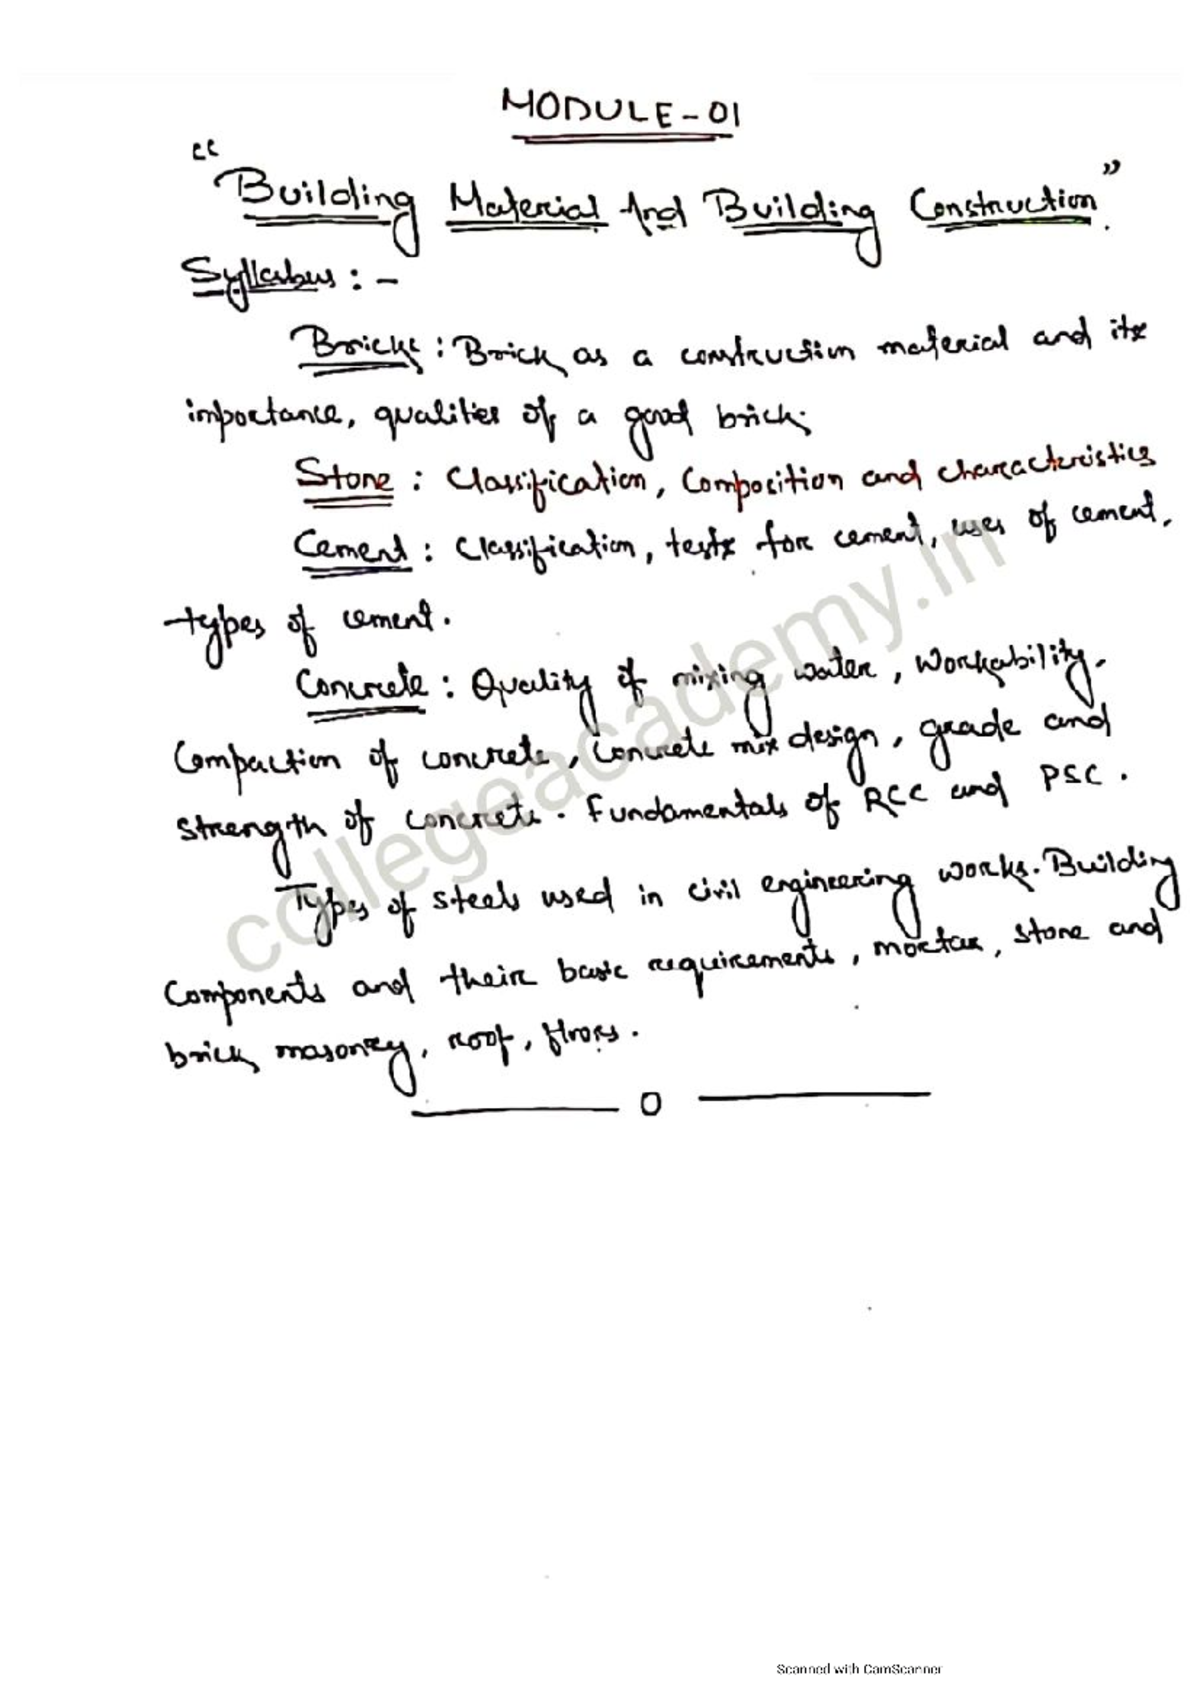 MODULE-01
"Building Material And Building Construction".
Syllabus :-
Bricks : Brick as a construction material and its
importance, qualities of a good brick.
Stone : Classification, Composition and characteristics
Cement : Classification, tests for cement, uses of cement,
types of cement.
Concrete : Quality of mixing water, Workability,
Compaction of concrete, Concrete mix design, grade and
strength of concrete. Fundamentals of RCC and PSC.
Types of steels used in civil engineering works. Building
Components and their basic requirements, mortar, stone and
brick masonry, roof, floors.
O
collegeacademy.in
Scanned with CamScanner